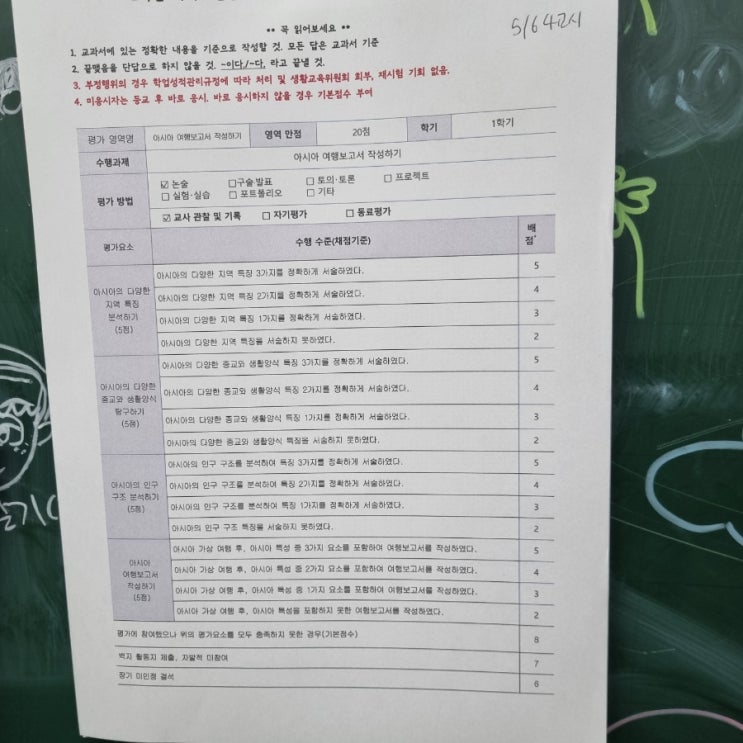 ** 꼭 읽어보세요 **
5/6 4교시
1. 교과서에 있는 정확한 내용을 기준으로 작성할 것. 모든 답은 교과서 기준
2. 끝맺음을 단답으로 하지 않을 것. ~이다./~다. 라고 끝낼 것.
3. 부정행위의 경우 학업성적관리규정에 따라 처리 및 생활교육위원회 회부, 재시험 기회 없음.
4. 미응시자는 등교 후 바로 응시. 바로 응시하지 않을 경우 기본점수 부여
평가 영역명 아시아 여행보고서 작성하기 영역 만점 20점 학기 1학기
수행과제 아시아 여행보고서 작성하기
평가 방법
☑ 논술 □구술·발표 □ 토의·토론 □ 프로젝트
□ 실험·실습 □ 포트폴리오 □ 기타
☑ 교사 관찰 및 기록 □ 자기평가 □ 동료평가
평가요소 수행 수준(채점기준) 배점
아시아의 다양한 지역 특징 분석하기 (5점)
아시아의 다양한 지역 특징 3가지를 정확하게 서술하였다. 5
아시아의 다양한 지역 특징 2가지를 정확하게 서술하였다. 4
아시아의 다양한 지역 특징 1가지를 정확하게 서술하였다. 3
아시아의 다양한 지역 특징을 서술하지 못하였다. 2
아시아의 다양한 종교와 생활양식 탐구하기 (5점)
아시아의 다양한 종교와 생활양식 특징 3가지를 정확하게 서술하였다. 5
아시아의 다양한 종교와 생활양식 특징 2가지를 정확하게 서술하였다. 4
아시아의 다양한 종교와 생활양식 특징 1가지를 정확하게 서술하였다. 3
아시아의 다양한 종교와 생활양식 특징을 서술하지 못하였다. 2
아시아의 인구 구조 분석하기 (5점)
아시아의 인구 구조를 분석하여 특징 3가지를 정확하게 서술하였다. 5
아시아의 인구 구조를 분석하여 특징 2가지를 정확하게 서술하였다. 4
아시아의 인구 구조를 분석하여 특징 1가지를 정확하게 서술하였다. 3
아시아의 인구 구조 특징을 서술하지 못하였다. 2
아시아 여행보고서 작성하기 (5점)
아시아 가상 여행 후, 아시아 특성 중 3가지 요소를 포함하여 여행보고서를 작성하였다. 5
아시아 가상 여행 후, 아시아 특성 중 2가지 요소를 포함하여 여행보고서를 작성하였다. 4
아시아 가상 여행 후, 아시아 특성 중 1가지 요소를 포함하여 여행보고서를 작성하였다. 3
아시아 가상 여행 후, 아시아 특성을 포함하지 못한 여행보고서를 작성하였다. 2
평가에 참여했으나 위의 평가요소를 모두 충족하지 못한 경우(기본점수) 8
백지 활동지 제출, 자발적 미참여 7
장기 미인정 결석 6